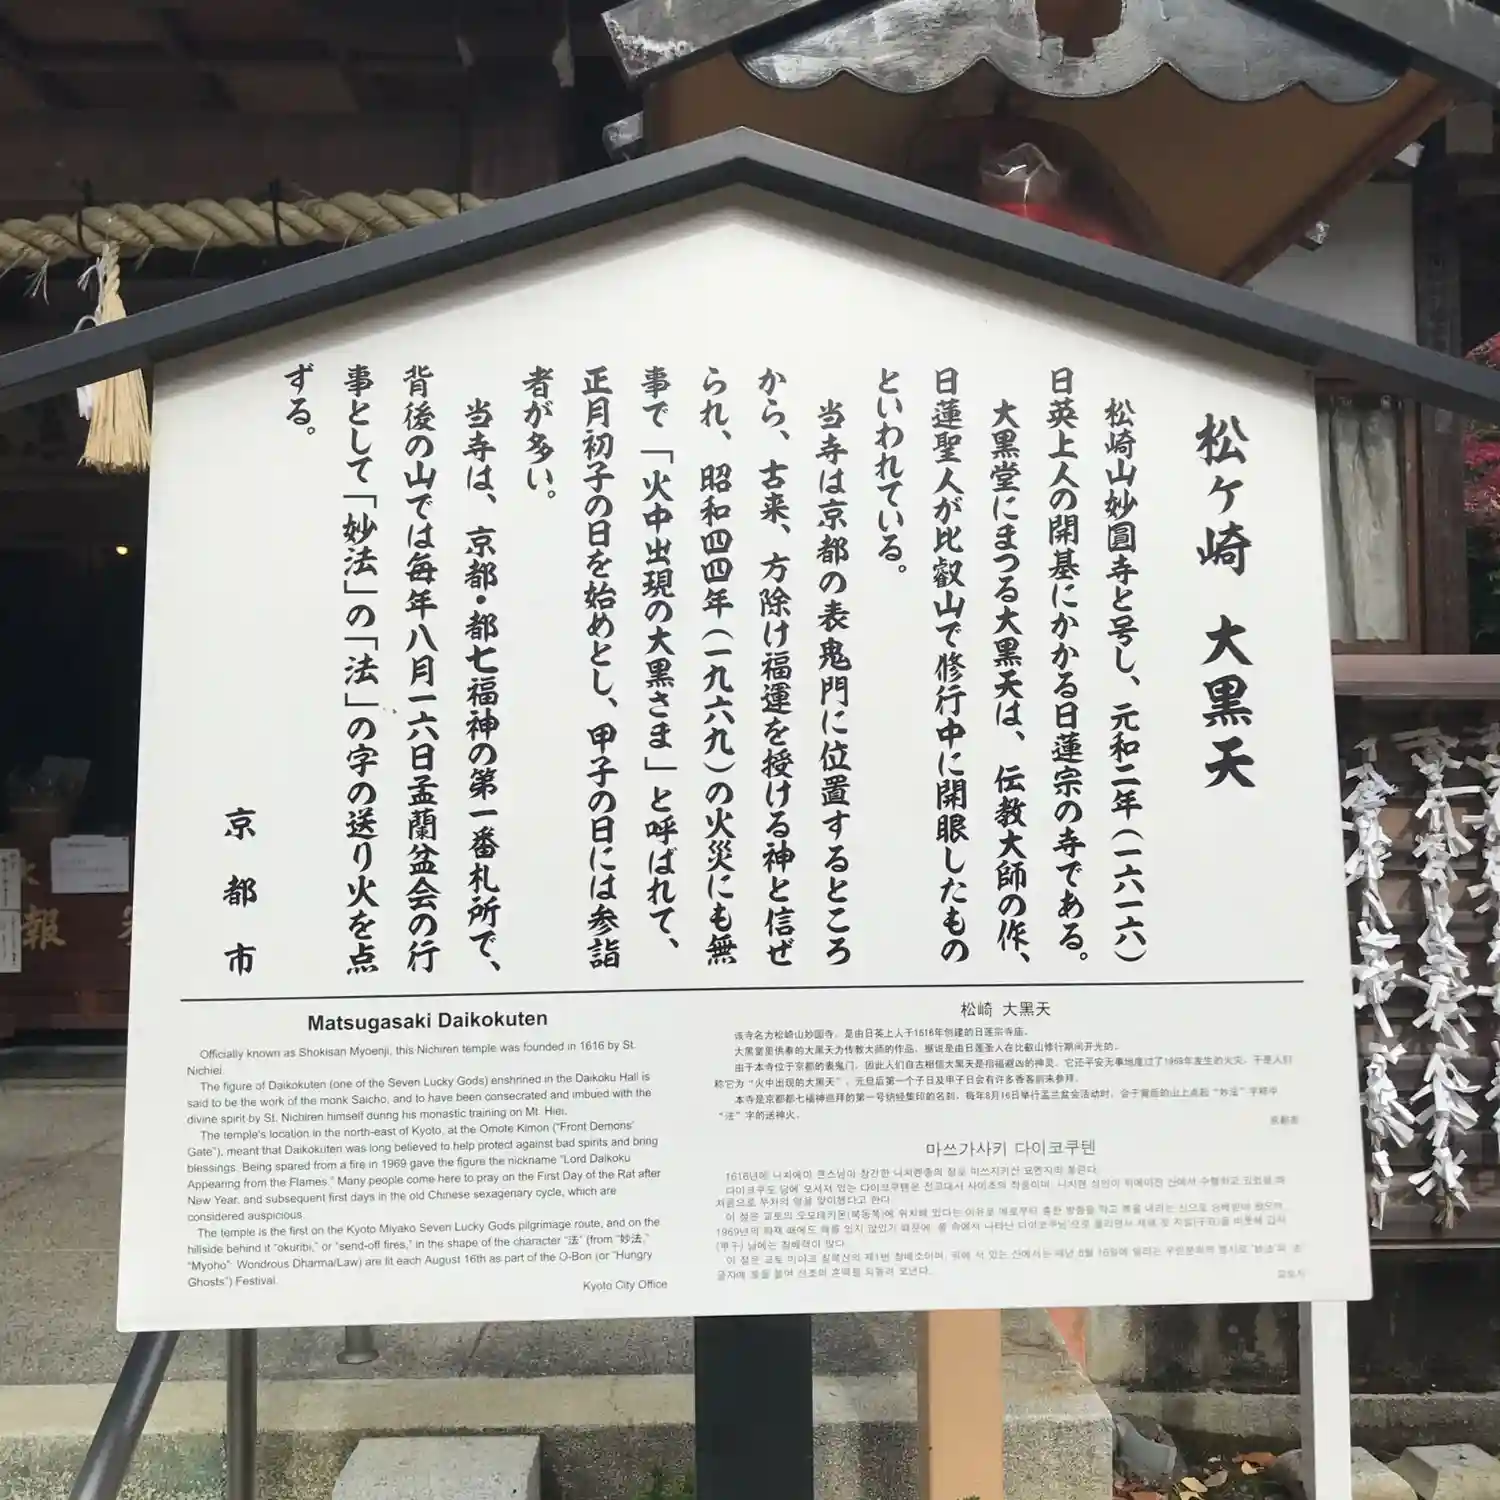 松ヶ崎 大黒天
松崎山妙圓寺と号し、元和二年(一六一六)
日英上人の開基にかかる日蓮宗の寺である。
大黒堂にまつる大黒天は、伝教大師の作、
日蓮聖人が比叡山で修行中に開眼したもの
といわれている。
当寺は京都の表鬼門に位置するところ
から、古来、方除け福運を授ける神と信ぜ
られ、昭和四四年(一九六九)の火災にも無
事で「火中出現の大黒さま」と呼ばれて、
正月初子の日を始めとし、甲子の日には参詣
者が多い。
当寺は、京都・都七福神の第一番札所で、
背後の山では毎年八月一六日盂蘭盆会の行
事として「妙法」の「法」の字の送り火を点
ずる。
京都市
Matsugasaki Daikokuten
Officially known as Shokisan Myoenji, this Nichiren temple was founded in 1616 by St.
Nichiei.
The figure of Daikokuten (one of the Seven Lucky Gods) enshrined in the Daikoku Hall is
said to be the work of the monk Saicho, and to have been consecrated and imbued with the
divine spirit by St. Nichiren himself during his monastic training on Mt. Hiei.
The temple's location in the north-east of Kyoto, at the Omote Kimon ("Front Demons'
Gate"), meant that Daikokuten was long believed to help protect against bad spirits and bring
blessings. Being spared from a fire in 1969 gave the figure the nickname "Lord Daikoku
Appearing from the Flames." Many people come here to pray on the First Day of the Rat after
New Year, and subsequent first days in the old Chinese sexagenary cycle, which are
considered auspicious.
The temple is the first on the Kyoto Miyako Seven Lucky Gods pilgrimage route, and on the
hillside behind it "okuribi," or "send-off fires," in the shape of the character "法" (from "妙法,"
"Myoho": Wondrous Dharma/Law) are lit each August 16th as part of the O-Bon (or "Hungry
Ghosts") Festival.
Kyoto City Office
松崎 大黑天
该寺名为松崎山妙圆寺，是由日英上人于1616年创建的日莲宗寺庙。
大黑堂里供奉的大黑天为传教大师的作品，据说是由日莲圣人在比叡山修行期间开光的。
由于本寺位于京都的表鬼门，因此人们自古相信大黑天是指福避凶的神灵。它还平安无事地度过了1969年发生的火灾，于是人们
称它为"火中出现的大黑天"。元旦后第一个子日及甲子日会有许多香客前来参拜。
本寺是京都都七福神巡拜的第一号纳经集印的名刹，每年8月16日举行盂兰盆会活动时，会于背面的山上点起"妙法"字样中
"法"字的送神火。
京都市
마쓰가사키 다이코쿠텐
교토시
報